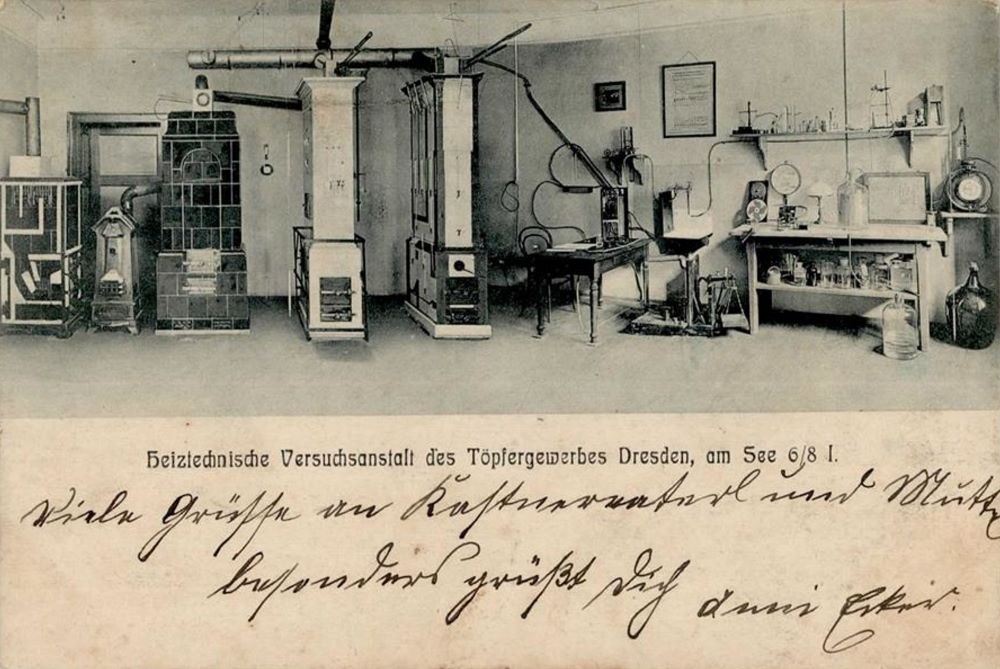 Heiztechnische Versuchsanstalt des Töpfergewerbes Dresden, am See 6/8 I.
Viele Grüsse an Kastnervaterl und Mutt
besonders grüßt Dich Anni Ecker.